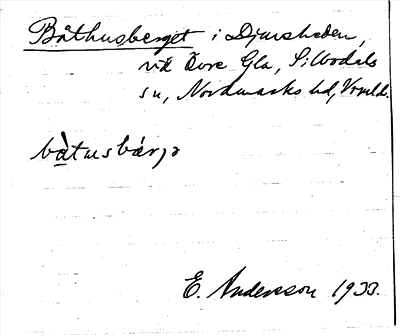 Båthusberget i Djurskaden,
vid Övre Gla, Sillbodals
sn, Nordmarks hd, Vrmld.
bàtusbárjə
E. Andersson 1933.